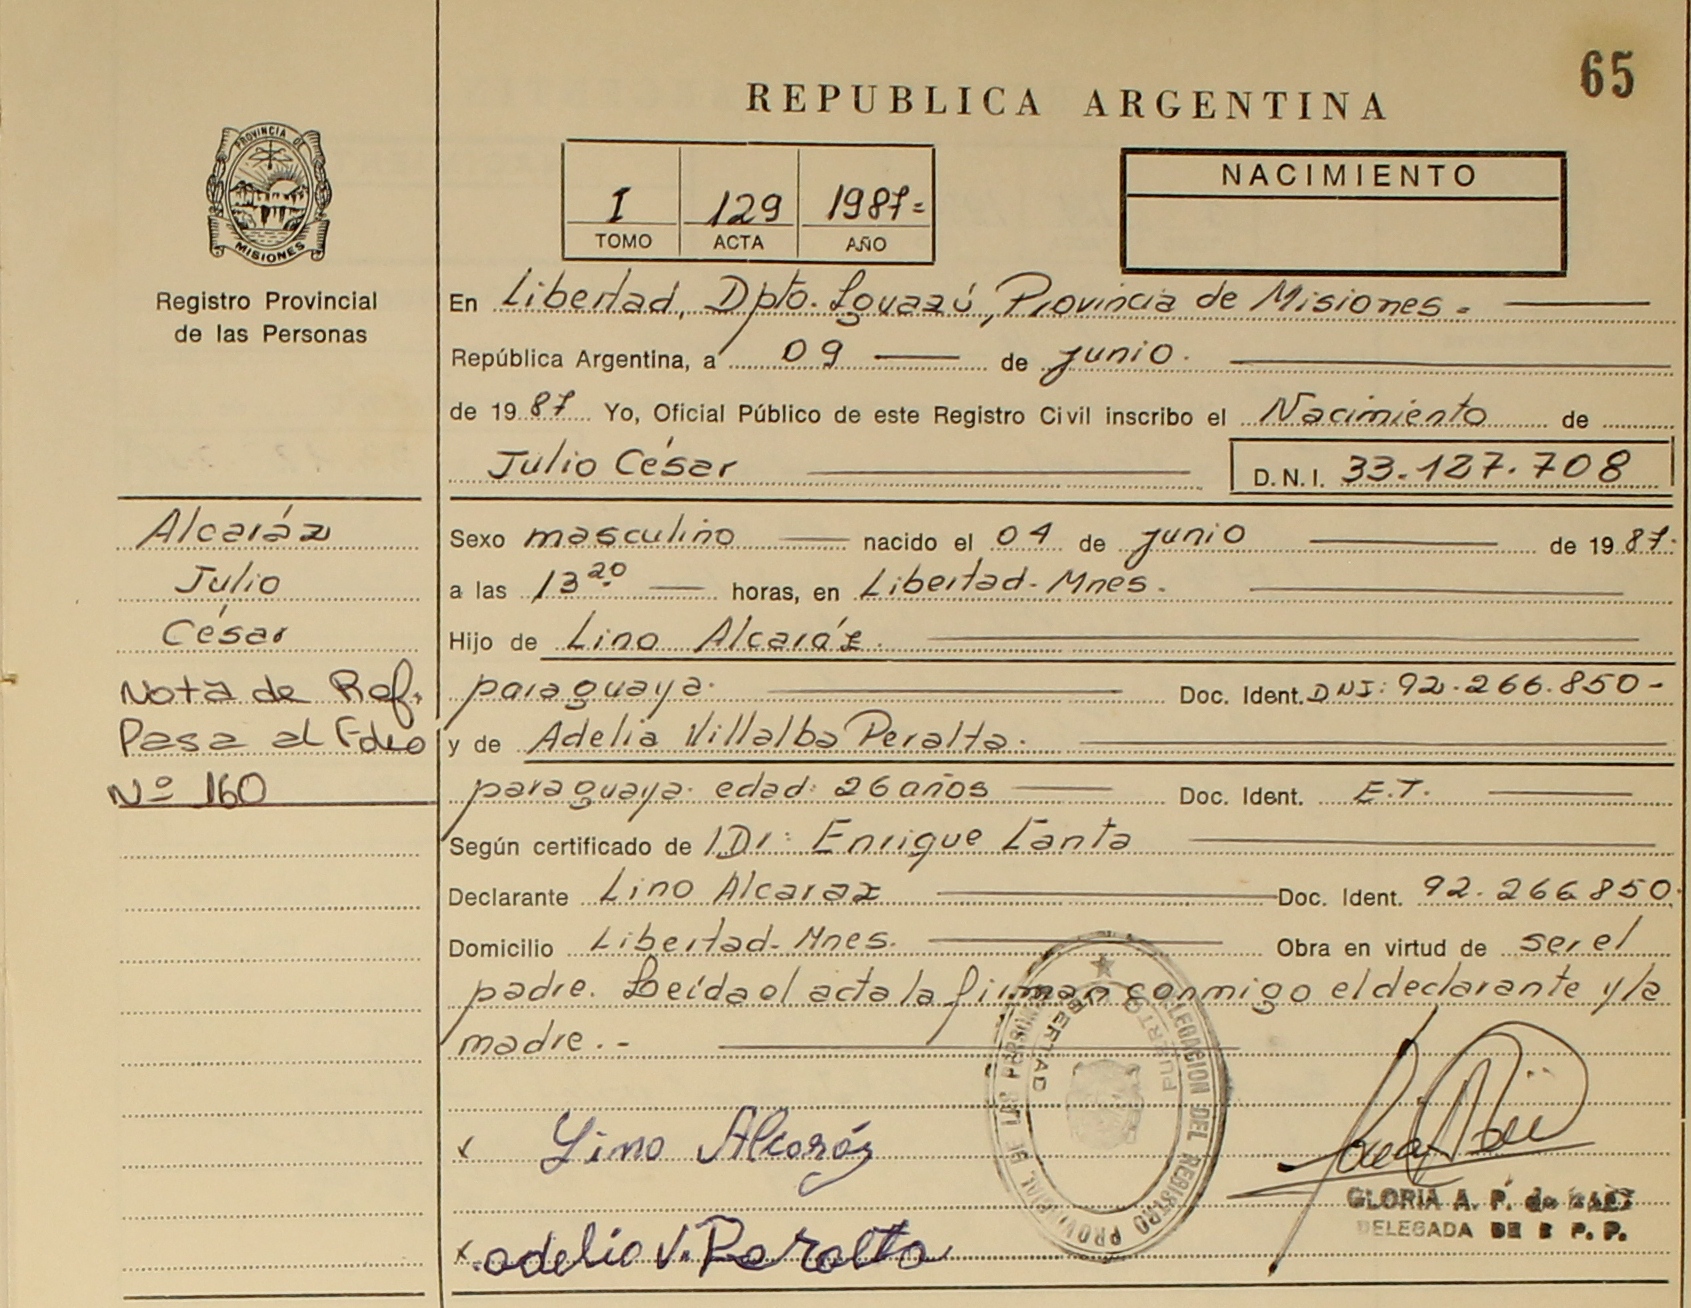 65
REPUBLICA ARGENTINA
PROVINCIA DE
MISIONES
Registro Provincial
de las Personas
I 129 1987=
TOMO ACTA AÑO
NACIMIENTO
En Libertad, Dpto. Iguazú, Provincia de Misiones.
República Argentina, a 09 de junio.
de 1987 Yo, Oficial Público de este Registro Civil inscribo el Nacimiento de
Julio César D.N.I. 33.127.708
Alcaráz
Julio
César
Nota de Ref.
Pasa al Folio
Nº 160
Sexo masculino nacido el 04 de junio de 1987.
a las 13 20 horas, en Libertad-Mnes.
Hijo de Lino Alcaráz.
paraguaya. Doc. Ident. DNI: 92.266.850-
y de Adelia Villalba Peralta.
paraguaya. edad: 26 años Doc. Ident. E.T.
Según certificado de Dr: Enrique
Declarante Lino Alcaraz Doc. Ident. 92.266.850.
Domicilio Libertad-Mnes. Obra en virtud de ser el
padre. Leída el acta la firman conmigo el declarante y la
madre.-
DELEGACION DEL REGISTRO PROVINCIAL DE LAS PERSONAS
PUERTO LIBERTAD
Lino Alcaráz
adelia V. Peralta
GLORIA A. P. de
DELEGADA DE R P. P.